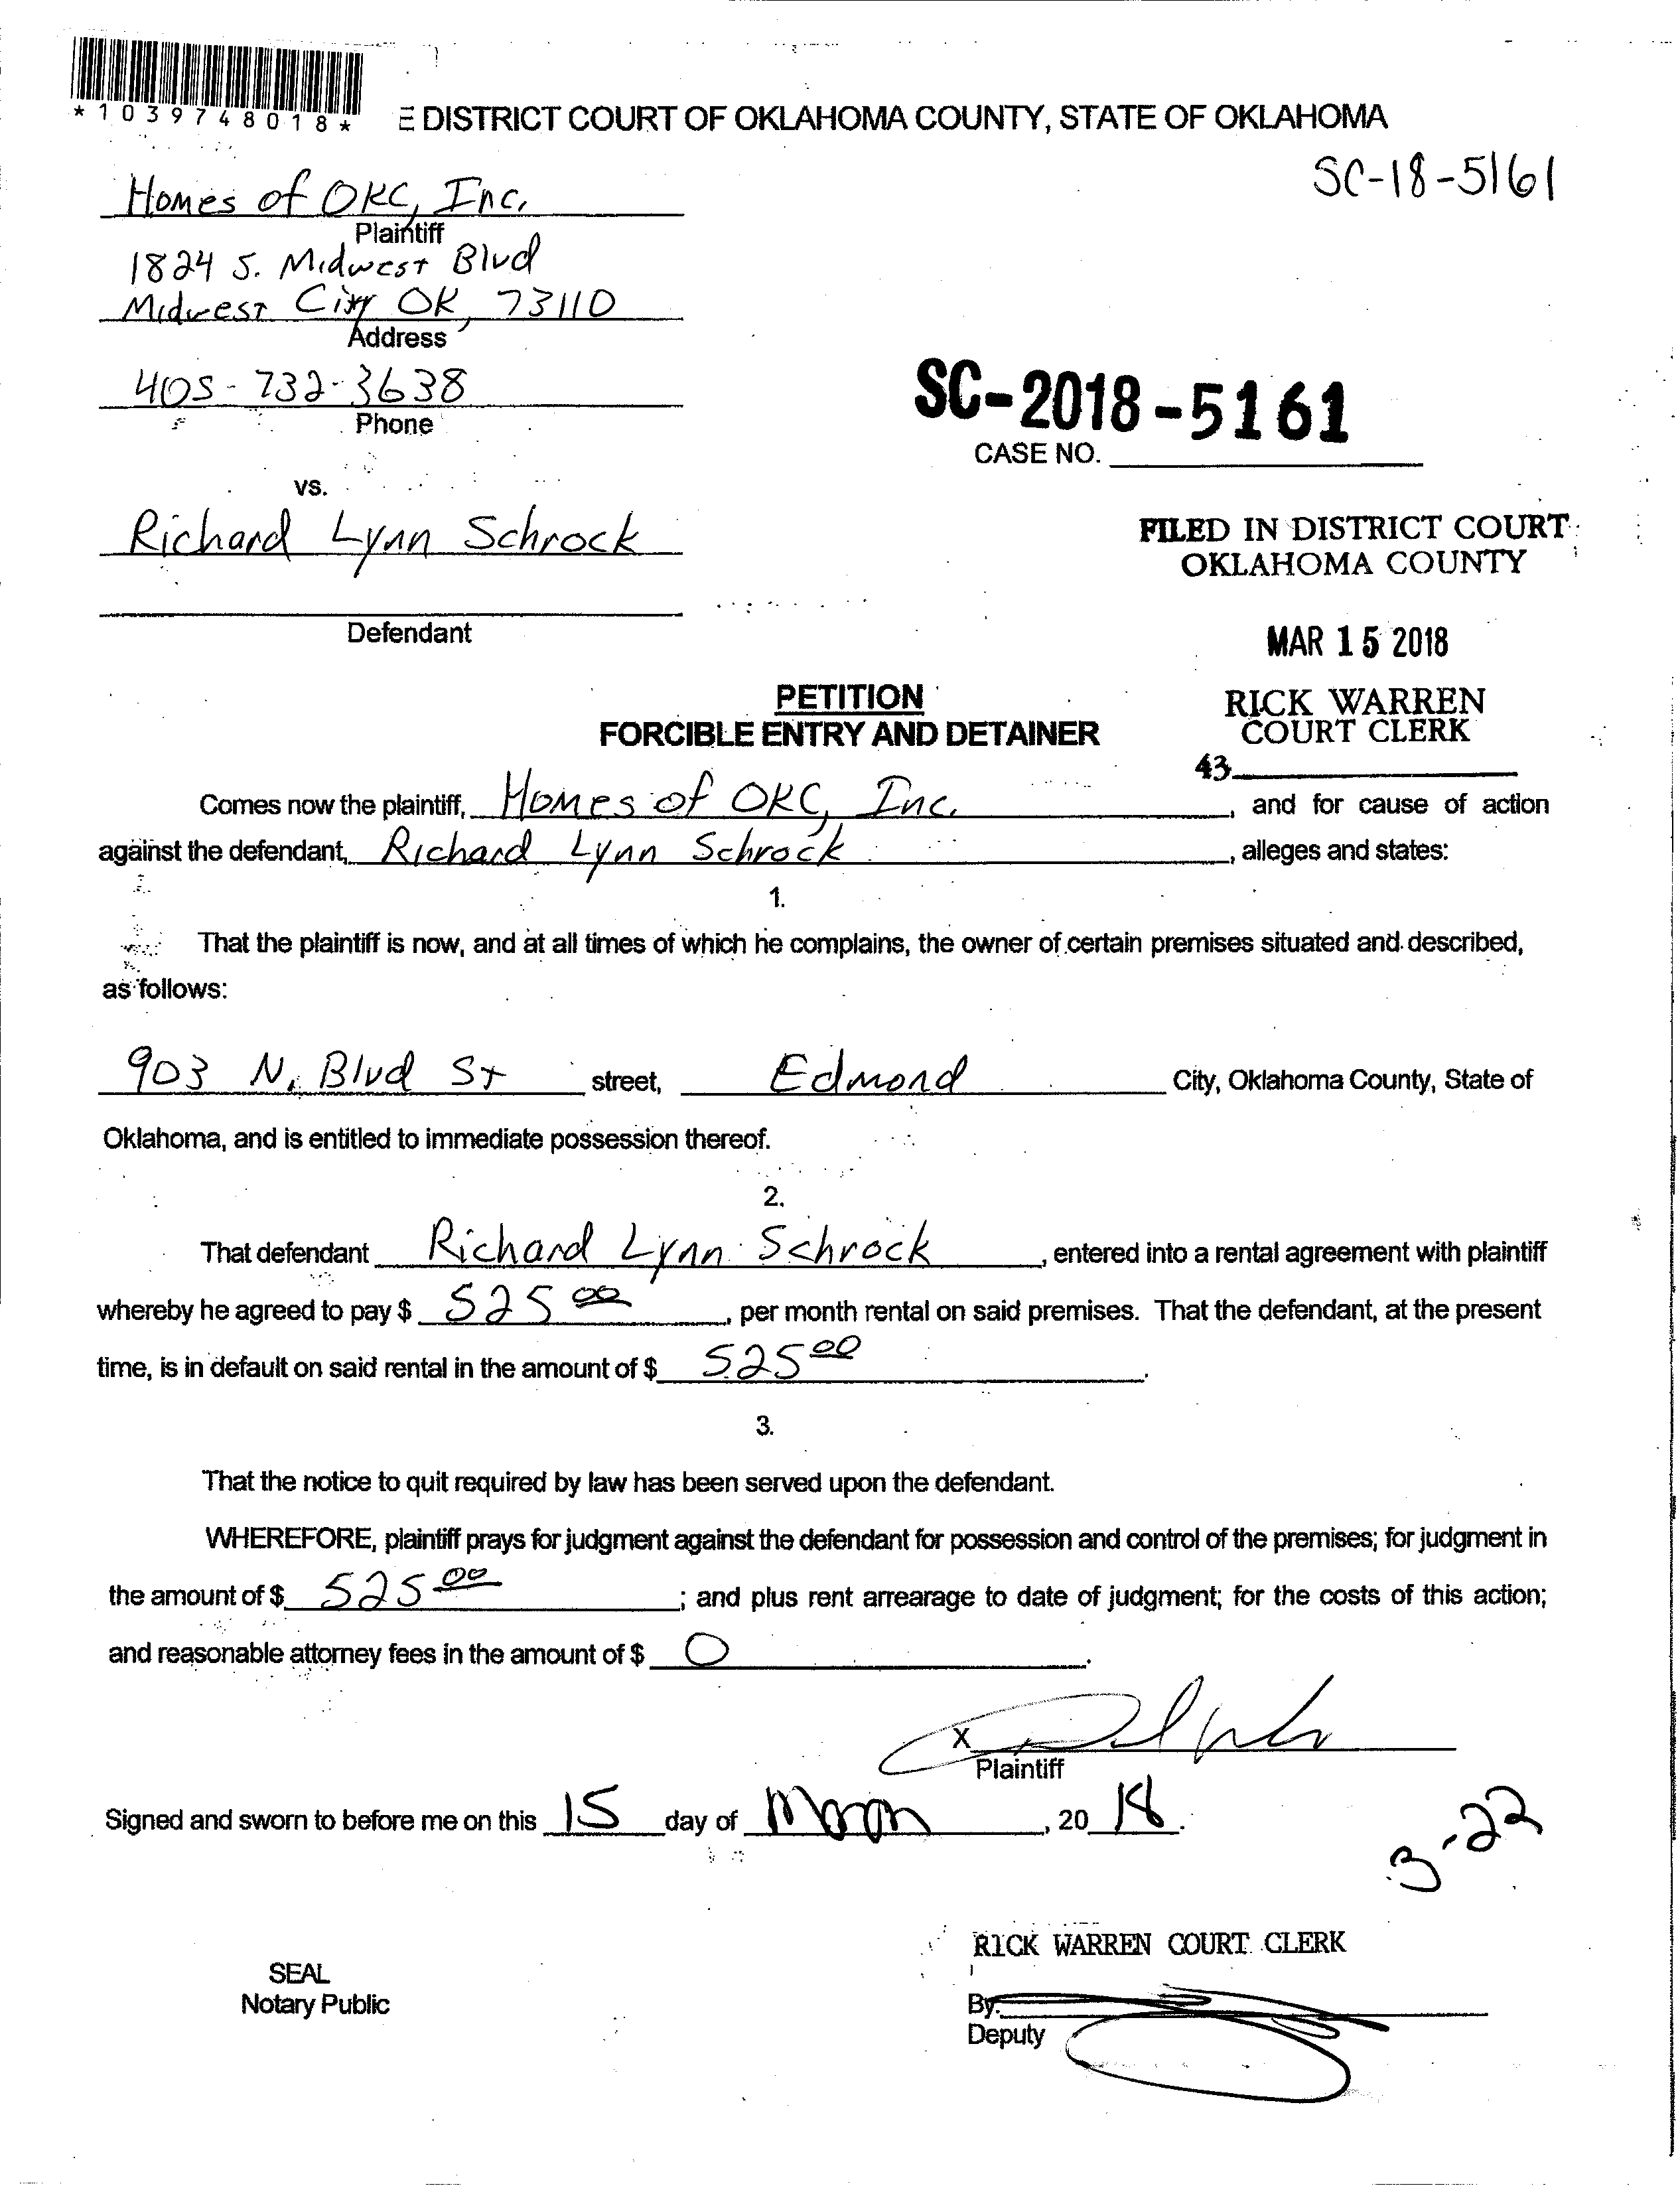 *1039748018*
E DISTRICT COURT OF OKLAHOMA COUNTY, STATE OF OKLAHOMA
SC-18-5161
Homes of OKC, Inc.
Plaintiff
1824 S. Midwest Blvd
Midwest City OK, 73110
Address
405-732-3638
Phone
SC-2018-5161
CASE NO.
vs.
Richard Lynn Schrock
Defendant
FILED IN DISTRICT COURT
OKLAHOMA COUNTY
MAR 15 2018
RICK WARREN
COURT CLERK
43
PETITION
FORCIBLE ENTRY AND DETAINER
Comes now the plaintiff, Homes of OKC, Inc., and for cause of action
against the defendant, Richard Lynn Schrock, alleges and states:
1.
That the plaintiff is now, and at all times of which he complains, the owner of certain premises situated and described,
as follows:
903 N. Blvd St street, Edmond City, Oklahoma County, State of
Oklahoma, and is entitled to immediate possession thereof.
2.
That defendant Richard Lynn Schrock, entered into a rental agreement with plaintiff
whereby he agreed to pay $ 525 00, per month rental on said premises. That the defendant, at the present
time, is in default on said rental in the amount of $ 525 00.
3.
That the notice to quit required by law has been served upon the defendant.
WHEREFORE, plaintiff prays for judgment against the defendant for possession and control of the premises; for judgment in
the amount of $ 525 00; and plus rent arrearage to date of judgment; for the costs of this action;
and reasonable attorney fees in the amount of $ 0.
X
Plaintiff
Signed and sworn to before me on this 15 day of March, 20 18.
3-22
RICK WARREN COURT CLERK
SEAL
Notary Public
By:
Deputy